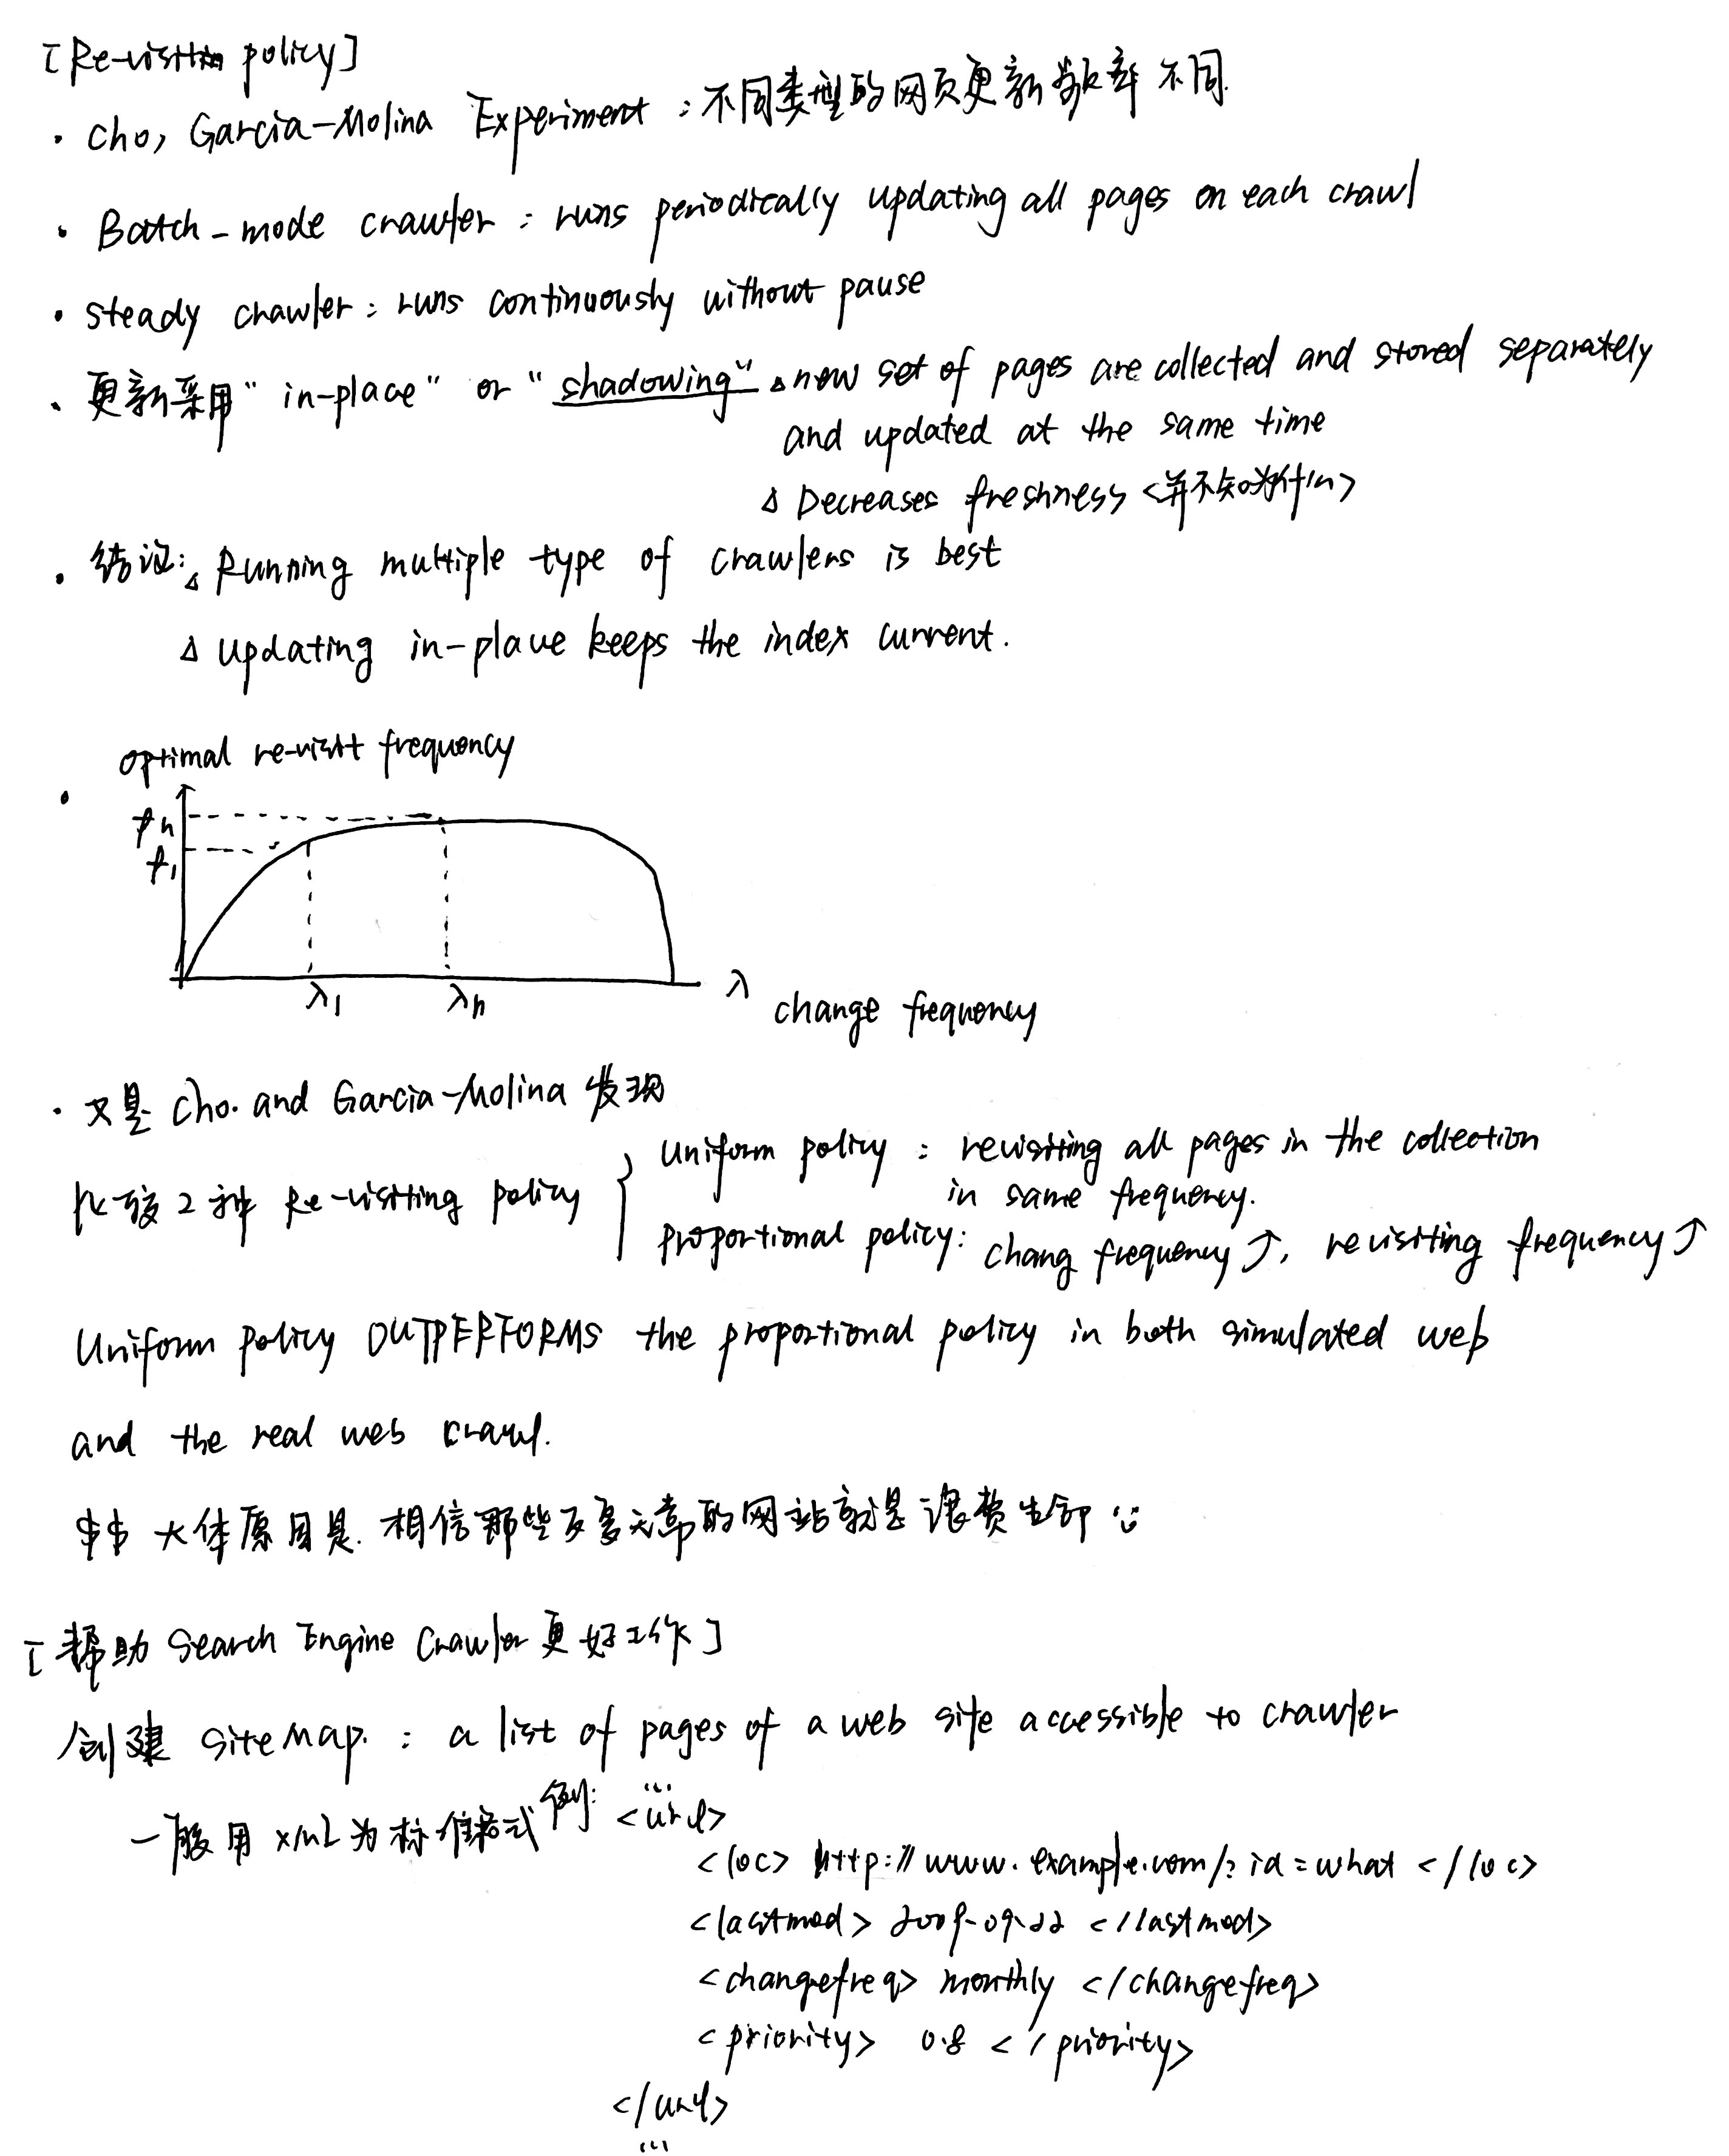 [Re-visition policy]
· Cho, Garcia-Molina Experiment : 不同类型的网页更新频率不同.
· Batch-mode crawler : runs periodically updating all pages on each crawl
· steady crawler : runs continuously without pause
· 更新采用 "in-place" or "shadowing" △ new set of pages are collected and stored separately
and updated at the same time
△ Decreases freshness <并不知为什么>
· 结论: △ Running multiple type of crawlers is best
△ updating in-place keeps the index current.
optimal re-visit frequency
·
fn
f1
λ1 λn λ
change frequency
· 又是 Cho. and Garcia-Molina 发现
比较 2 种 Re-visiting policy { uniform policy : revisiting all pages in the collection
in same frequency.
proportional policy: chang frequency ↗, revisiting frequency ↗
Uniform policy OUTPERFORMS the proportional policy in both simulated web
and the real web crawl.
$$ 大体原因是. 相信那些反复无常的网站就是浪费生命
[帮助 Search Engine Crawler 更好工作]
创建 SiteMap. : a list of pages of a web site accessible to crawler
一般用 XML 为标准格式 例: ... <url>
<loc> http://www.example.com/?id=what </loc>
<lastmod> 2009-09-22 </lastmod>
<changefreq> monthly </changefreq>
<priority> 0.8 </priority>
</url>
...